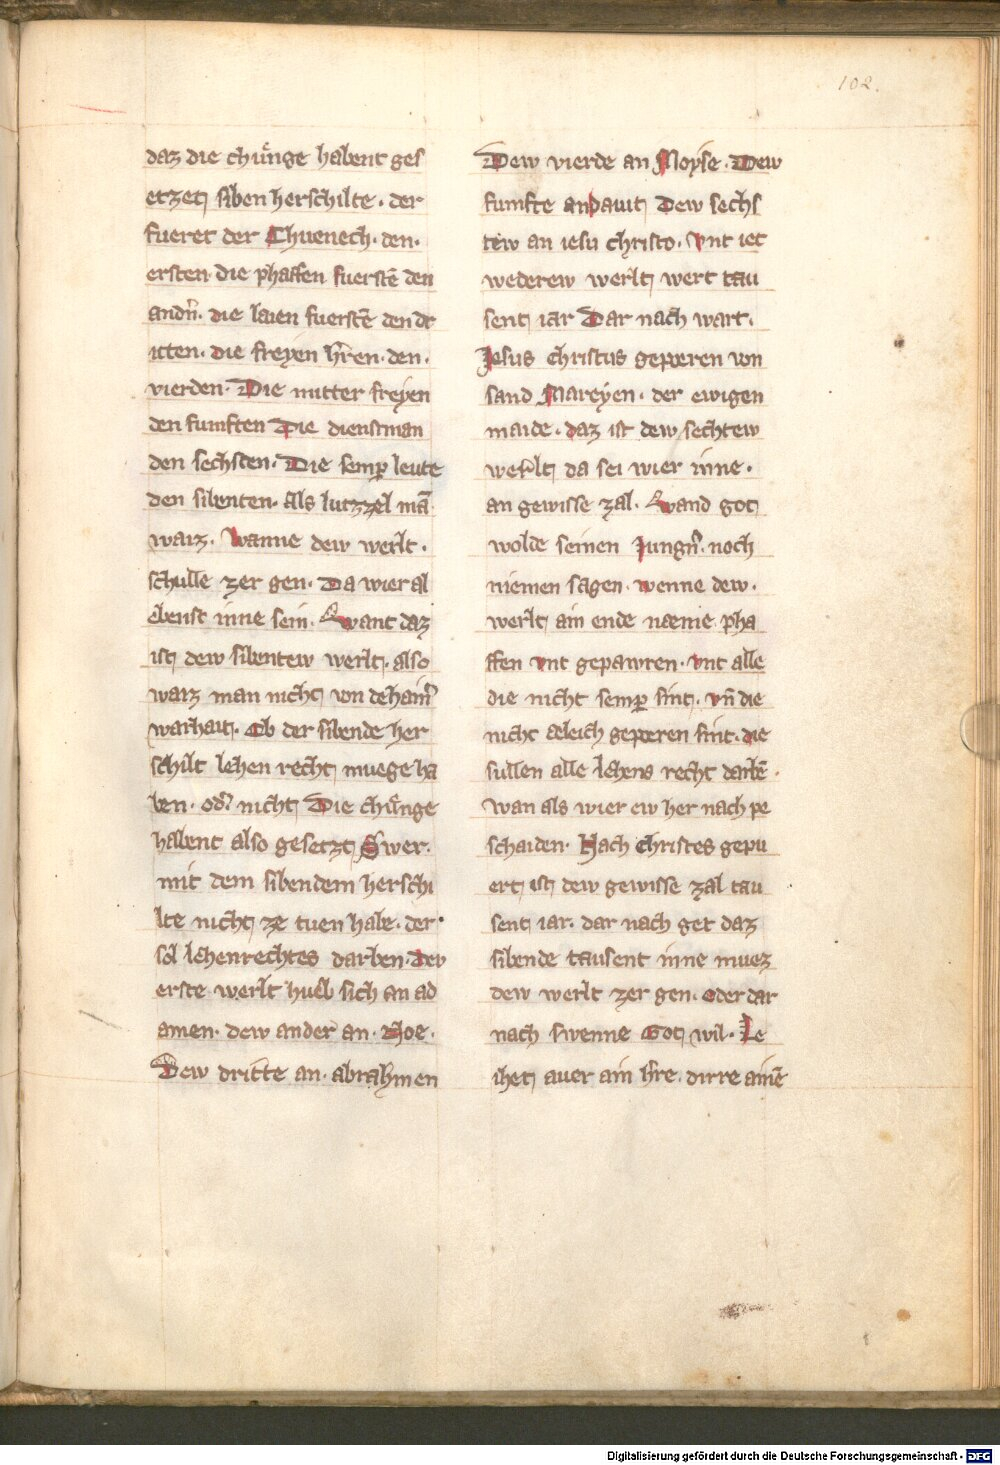 102.
daz die chuͤnge habent ges
etzet siben herschilte. der
fueret der Chuenech. den.
ersten die phaffen fuerstē den
andn̄. die laien fuerstē den dr
itten. die freyen hr̄en. den.
vierden. Die mitter freyen
den fumften Die dienstman
den sechsten. Die semp̱ leute
den sibenten. Als lutzzel mā
waiz. Wanne dew werlt.
schulle zer gen. Da wier al
ebenst inne sein. Want daz
ist dew sibentew werlt. also
waiz man nicht von dehain̄
warhait. Ob der sibende her
schilt lehen recht muege ha
ben. od̄ nicht Die chuͤnge
habent also gesetzt Swer.
mit dem sibendem herschi
lte nicht ze tuen habe. der
sol lehenrechtes darben. Dew
erste werlt hueb sich an ad
amen. dew ander an. Noe.
Dew dritte an. abrahmen
Dew vierde an Moyse. Dew
fumfte an Dauit Dew sechs
tew an iesu christo. Vnt iet
wederew werlt wert tau
sent iar Dar nach wart.
Jesus christus geperen von
sand Mareyen. der ewigen
maide. daz ist dew sechtew
werlt da sei wier inne.
an gewisse zal. Wand got
wolde seinen Jungn̄. noch
niemen sagen. wenne dew.
werlt ain ende næme. pha
ffen vnt gepawren. vnt alle
die nicht semp̱ sint. vn̄ die
nicht æleich geperen sint. die
sullen alle lehens recht darbē.
wan als wier ew her nach pe
schaiden. Nach Christes gepu
ert ist dew gewisse zal tau
sent iar. dar nach get daz
sibende tausent inne muez
dew werlt zer gen. oder dar
nach swenne Got wil. Le
ihet auer ain hr̄re. dirre ainē
Digitalisierung gefördert durch die Deutsche Forschungsgemeinschaft - DFG